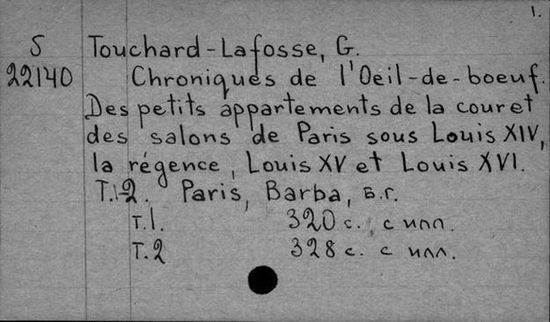 1.
S Touchard-Lafosse, G.
22140 Chroniques de l'Oeil-de-boeuf.
Des petits appartements de la cour et
des salons de Paris sous Louis XIV,
la régence, Louis XV et Louis XVI.
T.1-2. Paris, Barba, Б.г.
Т.1. 320 с. с илл.
Т.2 328 с. с илл.